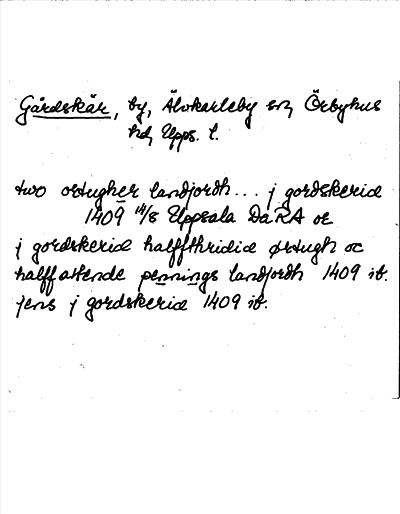 Gårdskär, by, Älvkarleby sn, Örbyhus
hd, Upps. l.
two ortugher landjordh... j gordskerid
1409 14/8 Uppsala DaRA oc
j gordskerid halffthridid ørtugh oc
halff attende pennings landjordh 1409 ib.
jens j gordskerid 1409 ib.